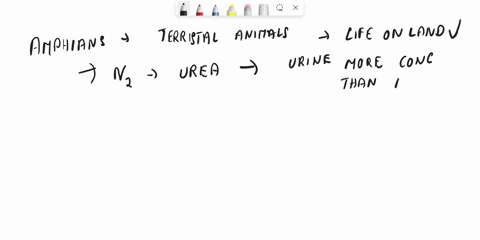 AMPHIANS → TERRISTAL ANIMALS → LIFE ON LAND ✓
→ N2 → UREA → URINE MORE CONC
THAN